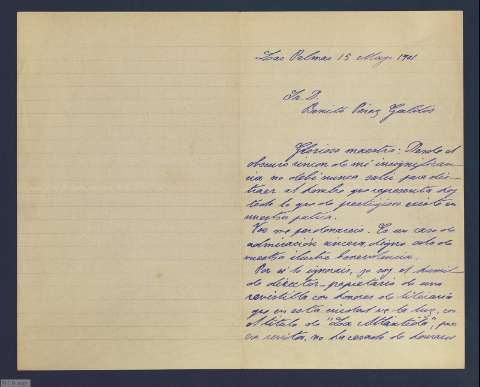 Las Palmas 15 Mayo 1901
Sr. D.
Benito Pérez Galdós
Glorioso maestro: Desde el
obscuro rincon de mi insignifican-
cia no debí nunca salir para dis-
traer al hombre que representa hoy
todo lo que de prestigioso existe en
nuestra patria.
Vos me perdonareis. Es un caso de
admiración sincera, digno solo de
vuestra ilustre benevolencia.
Por si lo ignorais, yo soy el humil-
de director-propietario de una
revistilla con honores de literaria
que en esta ciudad ve la luz, con
el título de "La Atlántida";
revista, no ha cesado de